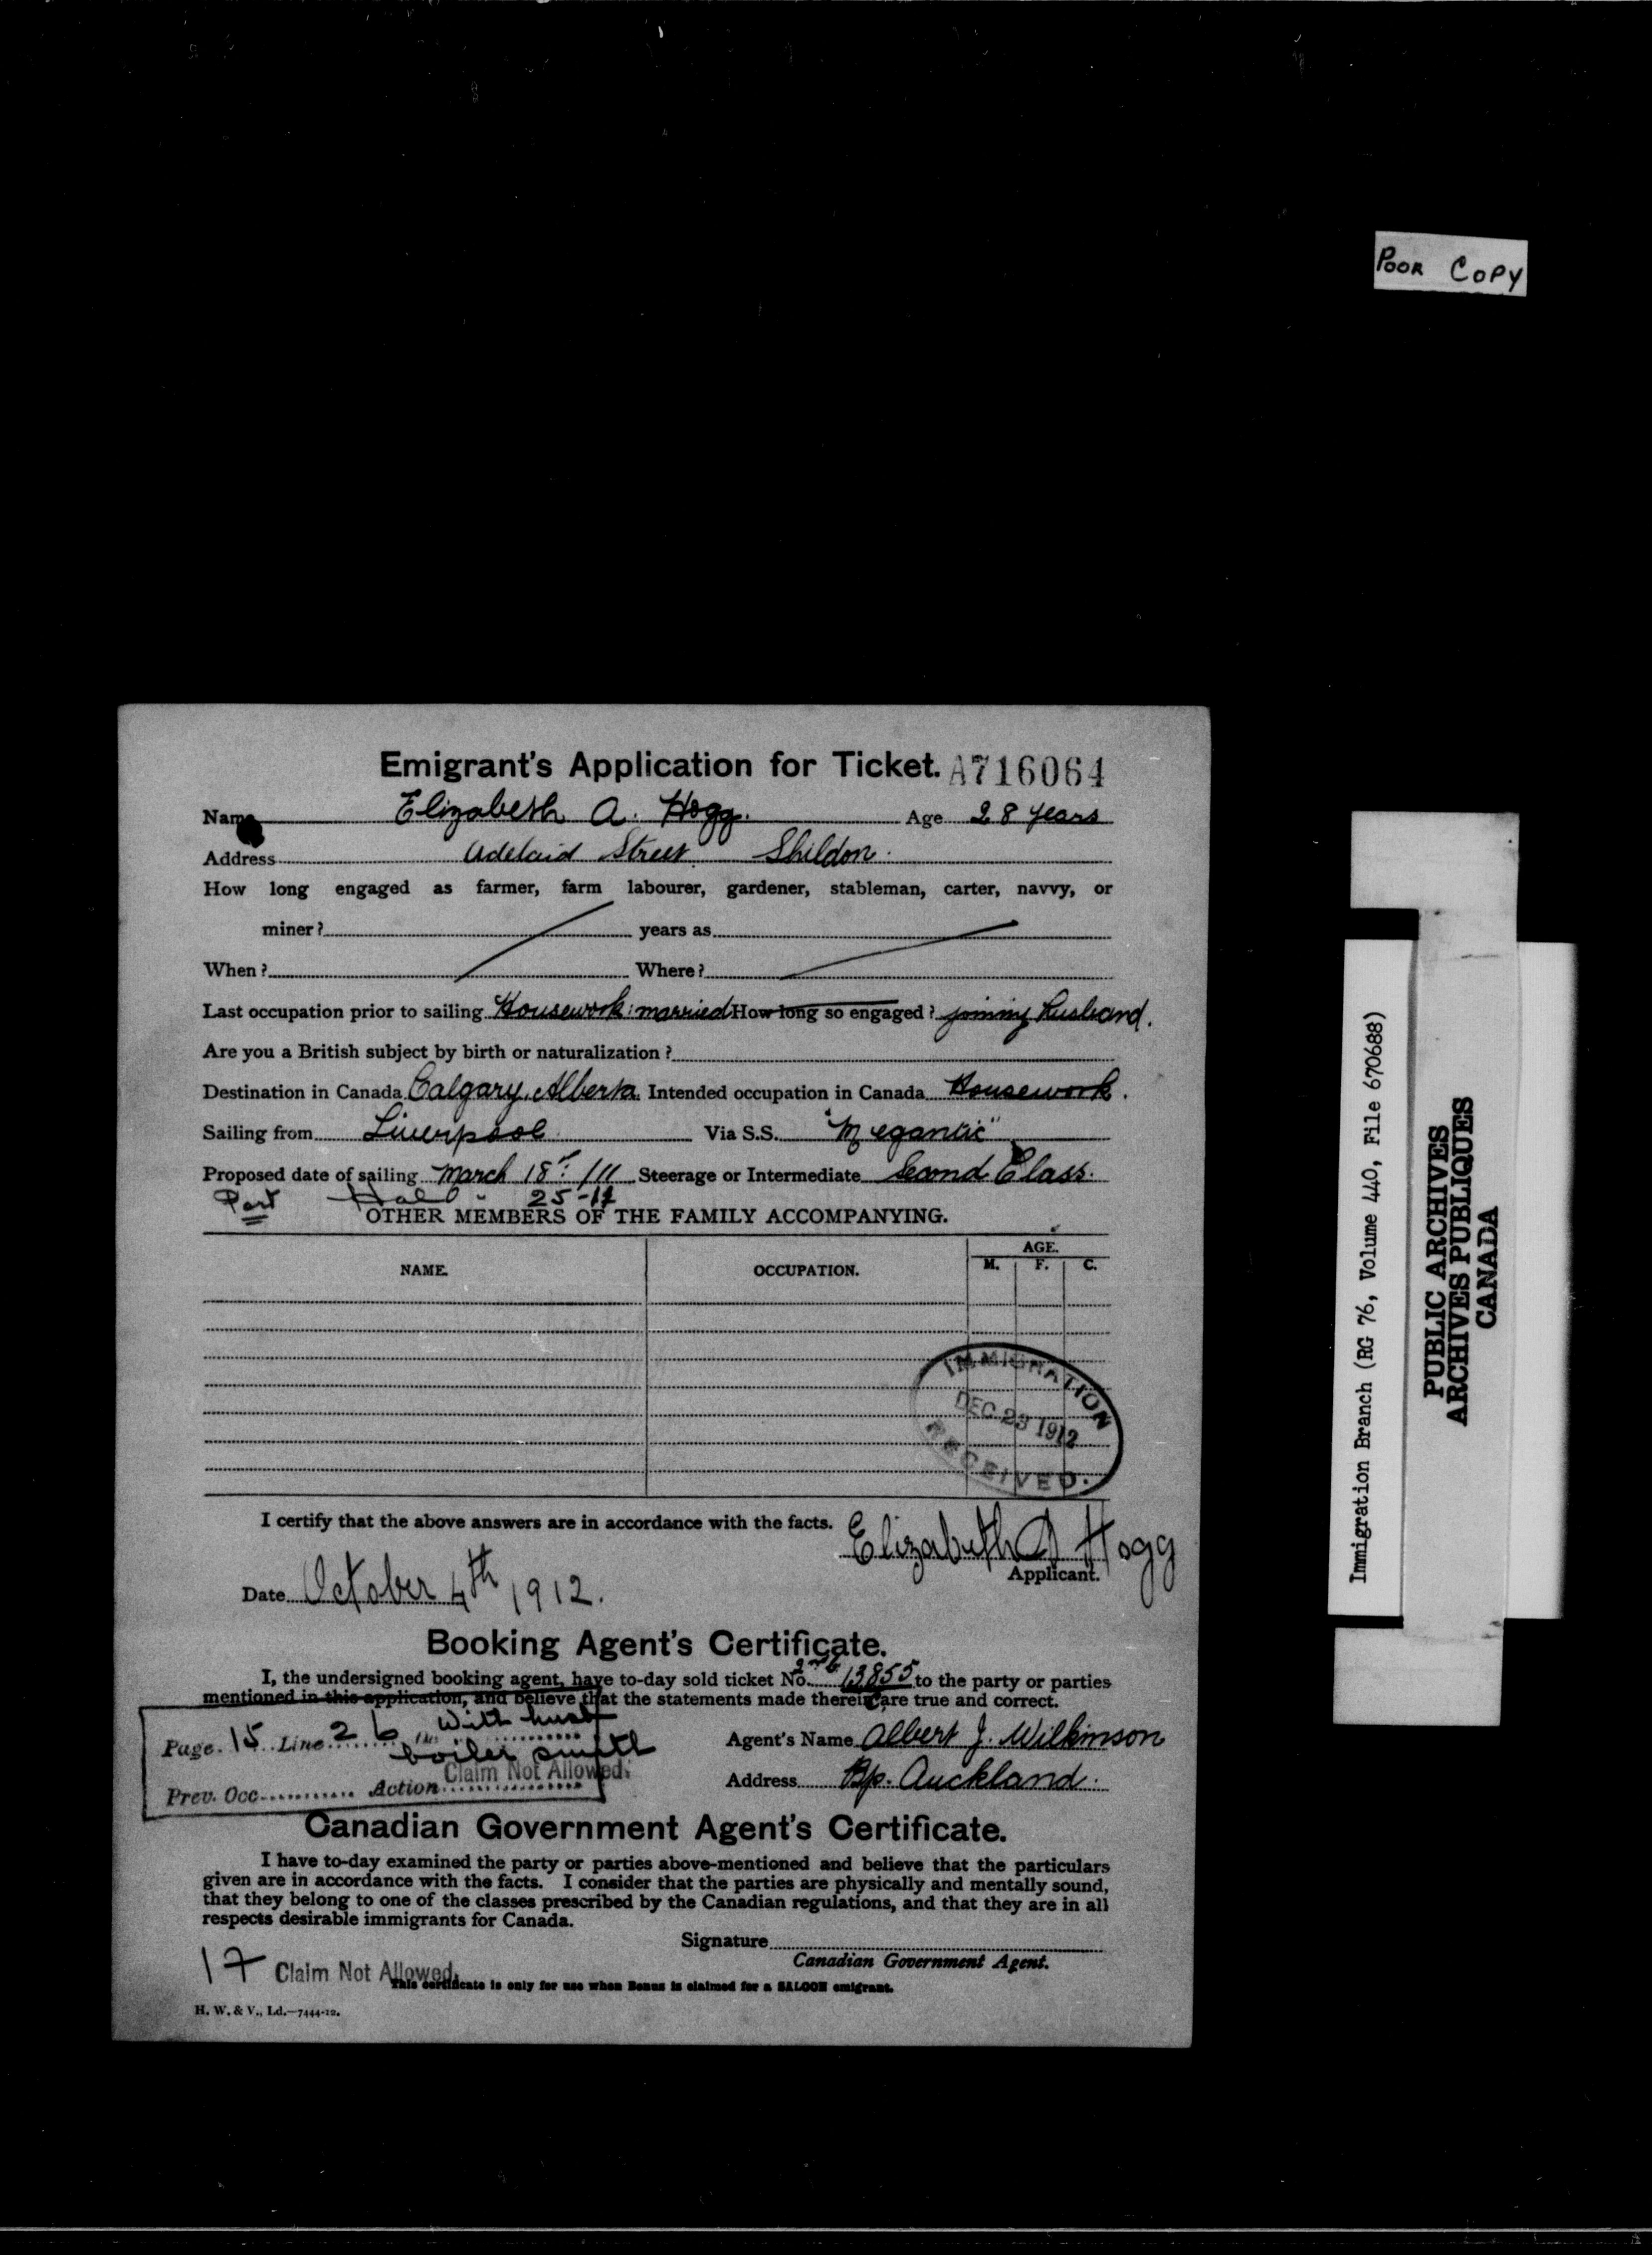 Poor Copy
Emigrant's Application for Ticket. A716064
Name Elizabeth A. Hogg. Age 28 years
Address Adelaid Street Shildon.
How long engaged as farmer, farm labourer, gardener, stableman, carter, navvy, or
miner? years as
When? Where?
Last occupation prior to sailing Housework: married How long so engaged? joining husband.
Are you a British subject by birth or naturalization?
Destination in Canada Calgary, Alberta. Intended occupation in Canada Housework.
Sailing from Liverpool Via S.S. "Megantic"
Proposed date of sailing March 18th /11 Steerage or Intermediate Second Class.
Port Hal - 25-11
OTHER MEMBERS OF THE FAMILY ACCOMPANYING.
NAME. OCCUPATION. AGE.
M. F. C.
IMMIGRATION
DEC 23 1912
RECEIVED.
I certify that the above answers are in accordance with the facts.
Elizabeth A Hogg
Applicant.
Date October 4th 1912.
Booking Agent's Certificate.
I, the undersigned booking agent, have to-day sold ticket No. 13855 to the party or parties
mentioned in this application, and believe that the statements made therein are true and correct.
Page 15 Line 26 With husb
boiler smith
Prev. Occ. Action Claim Not Allowed.
Agent's Name Albert J. Wilkinson
Address Bp. Auckland.
Canadian Government Agent's Certificate.
I have to-day examined the party or parties above-mentioned and believe that the particulars
given are in accordance with the facts. I consider that the parties are physically and mentally sound,
that they belong to one of the classes prescribed by the Canadian regulations, and that they are in all
respects desirable immigrants for Canada.
Signature
Canadian Government Agent.
17 Claim Not Allowed.
This certificate is only for use when Bonus is claimed for a SALOON emigrant.
H. W. & V., Ld.—7444-12.
Immigration Branch (RG 76, Volume 440, File 670688)
PUBLIC ARCHIVES
ARCHIVES PUBLIQUES
CANADA